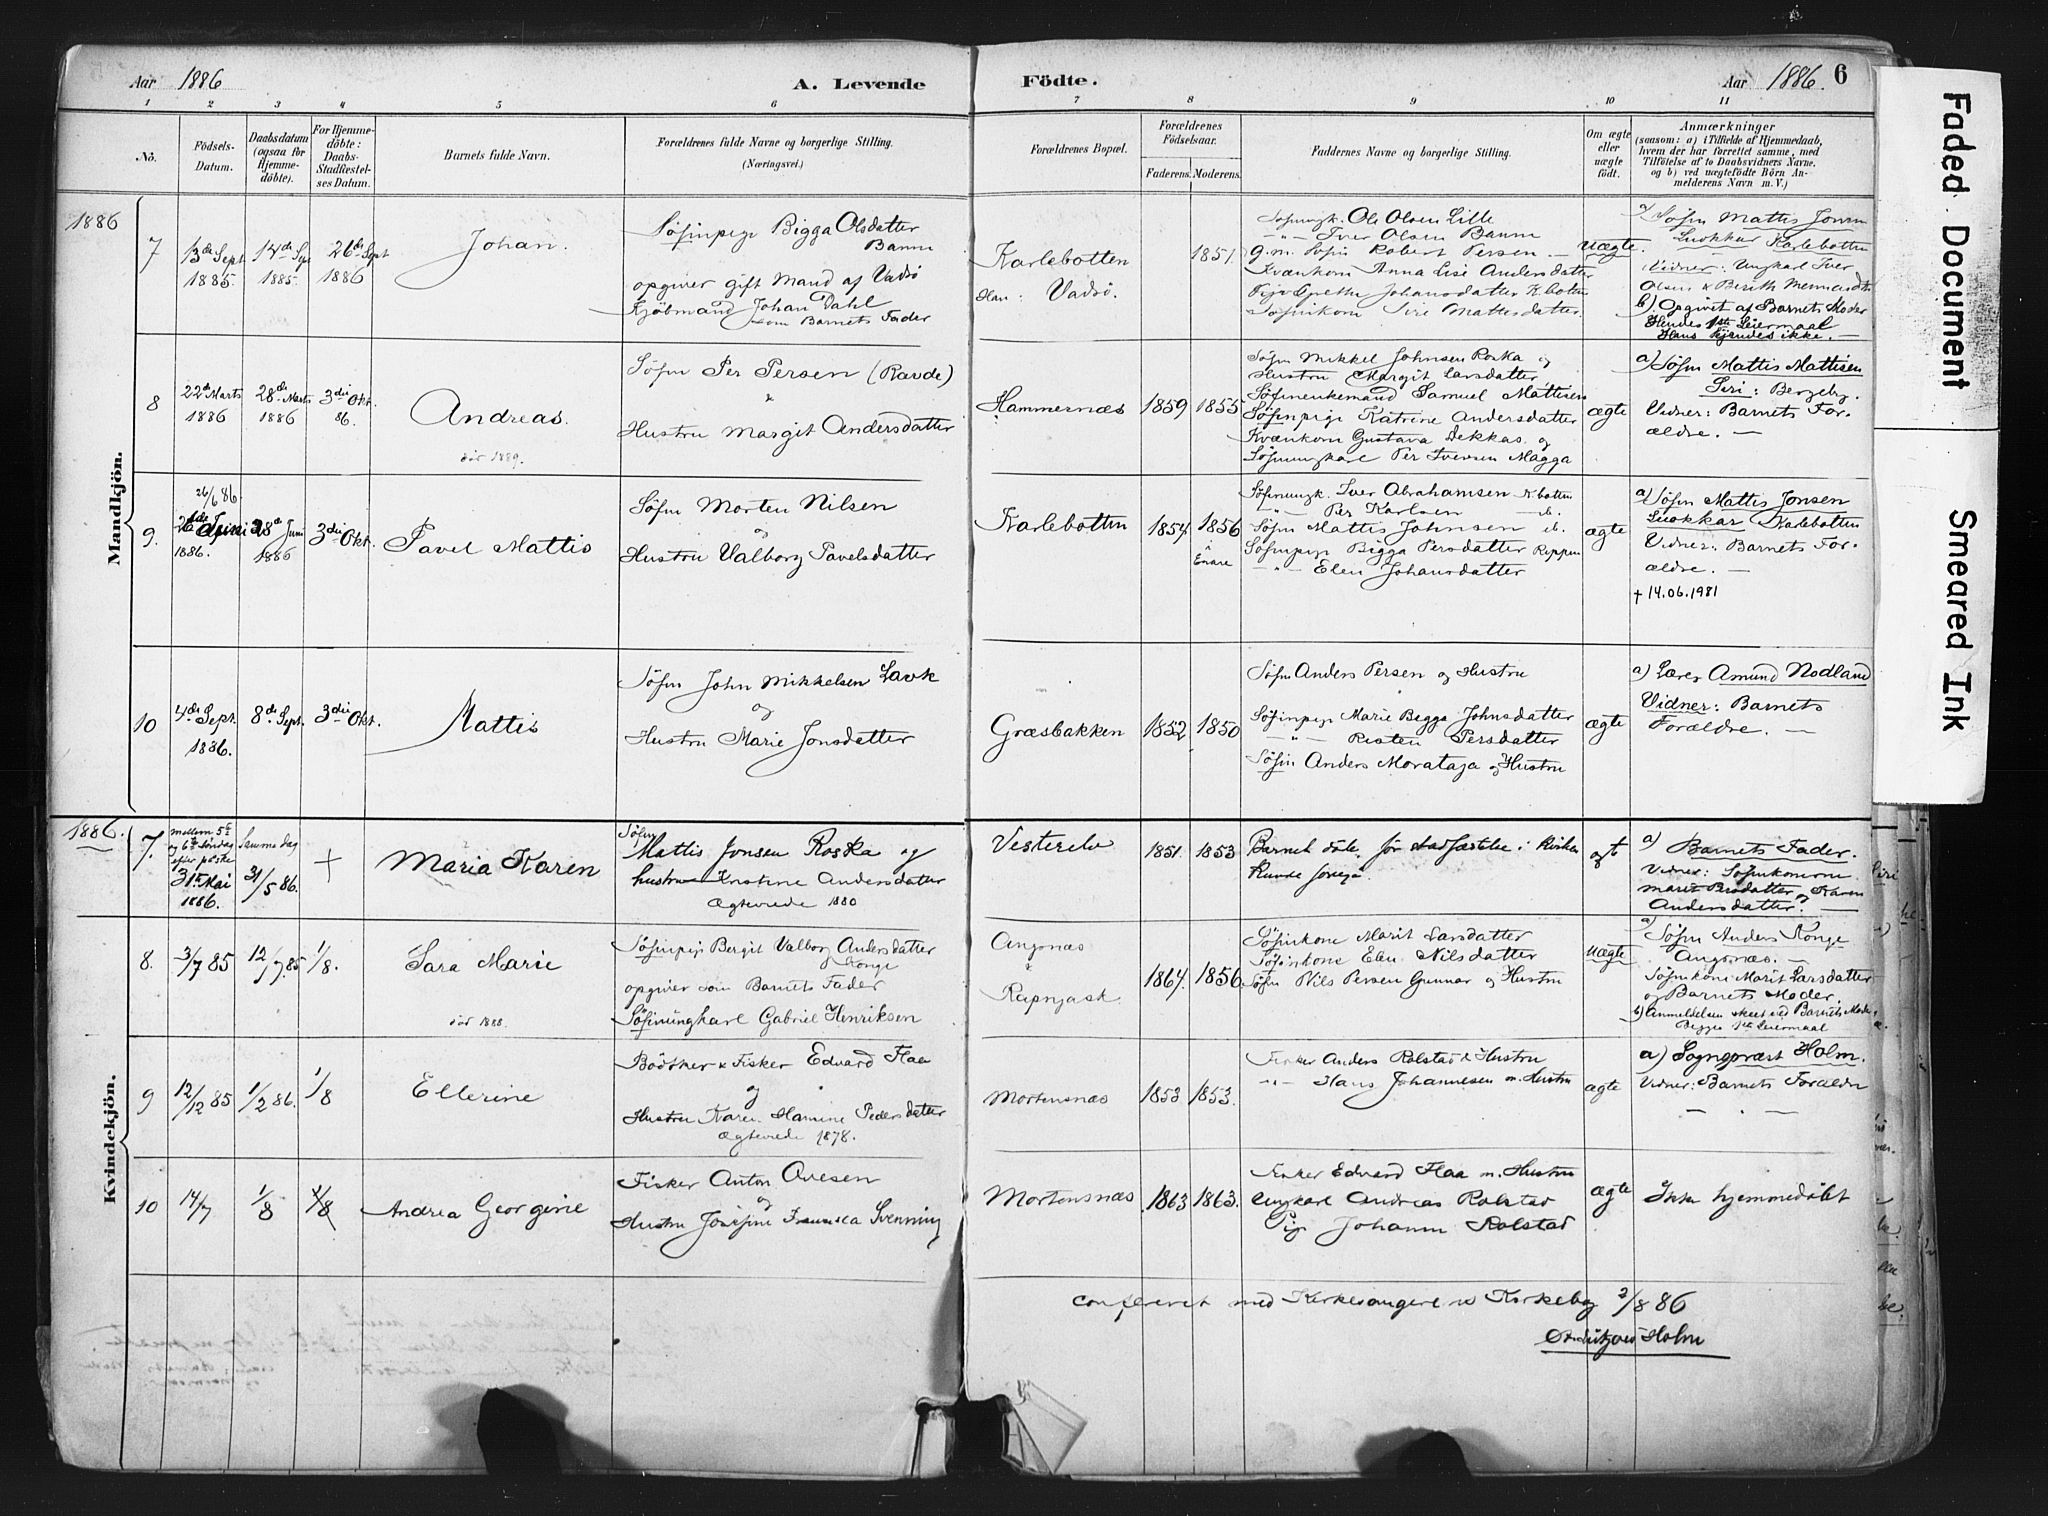 Aar 1886
A. Levende Födte.
Aar 1886. 6
1 2 3 4 5 6 7 8 9 10 11
No.
Födsels-Datum.
Daabsdatum (ogsaa for Hjemme-döbte).
For Hjemme-döbte: Daabs-Stadfæstel-ses Datum.
Barnets fulde Navn.
Forældrenes fulde Navne og borgerlige Stilling. (Næringsvei.)
Forældrenes Bopæl.
Forældrenes Födselsaar.
Faderens. Moderens.
Faddernes Navne og borgerlige Stilling.
Om ægte eller uægte födt.
Anmærkninger
(saasom: a) i Tilfælde af Hjemmedaab, hvem der har forrettet samme, med Tilföielse af to Daabsvidners Navne, og b) ved uægtefödte Börn An-melderens Navn m. V.)
Mandkjön.
1886
7
13de Sept 1885.
14de Sept 1885.
26de Sept 1886
Johan.
Söfinpige Bigga Olsdatter
Banne
opgiver gift Mand af Vadsö
Kjöbmand Johan Dahl
som Barnets Fader
Karlebotten
Han: Vadsö.
1851.
Söfinungk. Ole Olsen Lille
-"- Iver Olsen Banne
g.m. Söfin Robert Persen
Kvænkom Anna Lise Andersdatter
Pige Grethe Johansdatter K.boten
Söfinkom Siri Mattisdatter
Uægte.
a) Söfin Mattis Jonsen
Luokkar Karlebotten
Vidner: Ungkarl Iver
Olsen & Berith
b). Opgivet af Barnets Moder
Hendes 1ste Leiermaal
Hans kjendes ikke. —
8
22de Marts 1886
28de Marts 1886
3die Okt. 86.
Andreas.
död 1889.
Söfin Per Persen (Ravde)
&
Hustru Margit Andersdatter
Hammernæs
1859 1855
Söfin Mikkel Johnsen Roska og
Hustru Margit Larsdatter
Söfinenkemand Samuel Mattisen
Söfinpige Katrine Andersdatter
Kvænkom Gustava Dekkas og
Söfinungkarl Per Iversen Magga
ægte
a) Söfin Mattis Mattisen
Siri: Bergeby.
Vidner: Barnets For-
ældre. —
9.
26/6 86.
26de Juni 1886.
28de Juni 1886
3die Okt.
Pavel Mattis
Söfin Morten Nilsen
og
Hustru Valborg Pavelsdatter
Karlebotten
1854. 1856
i Enare
Söfinungk. Iver Abrahamsen K.botten
-"- Per Karlsen — ib.
Söfin Mattis Johnsen ib.
Söfinpige Bigga Persdatter Reppen
-"- Elen Johansdatter
ægte
a) Söfin Mattis Jonsen
Luokkar Karlebotten
Vidner: Barnets For-
ældre. —
+ 14.06.1981
10
4de Sept. 1886.
8de Sept.
3die Okt.
Mattis
Söfin John Mikkelsen Lavk
og
Hustru Marie Jonsdatter
Græsbakken
1852 1850
Söfin Anders Persen og Hustru
Söfinpige Marie Bigga Johnsdatter
-"- Risten Persdatter
Söfin Anders Morataja og Hustru
ægte
a) Lærer Amund Nodland
Vidner: Barnets
Forældre. —
Kvindekjön.
1886.
7.
mellem 5te og 6te Söndag efter paaske
31te Mai 1886.
Samme dag
31/5 86.
+
Maria Karen
Söfin
Mattis Jonsen Roska og
hustru Kristine Andersdatter
Ægteviede 1880
Vesterelv
1851. 1853
Barnet döde för stadfæstelse i Kirken
kunde foregå
ægt
a) Barnets Fader.
Vidner: Söfinkonerne
Marit Brodatter og Karen
Andersdatter. —
8.
3/7 85
12/7.85
1/8.
Sara Marie
död 1888.
Söfinpige Bergit Valborg Andersdatter
Konge
opgiver som Barnets Fader
Söfinungkarl Gabriel Henriksen
Angsnæs
&
Repnjask.
1864. 1856.
Söfinkone Marit Larsdatter
Söfinkone Elen Nilsdatter
Söfin Nils Persen Gunnar og Hustru
Uægte
a) Söfin Anders Konge
Angsnæs. —
Söfinkone Marit Larsdatter
og Barnets Moder.
b) Anmeldelsen skeet ved Barnets Moder.
Begges 1ste Leiermaal
9
12/12 85
1/2 86.
1/8
Ellerine
Bödker & Fisker Edvard Flaa
og
Hustru Karen Hamine Pedersdatter
Ægteviede 1878.
Mortensnæs
1853 1853.
Fisker Anders Rolstad & Hustru
-"- Hans Johannesen m. Hustru
ægte
a) Sognepræst Holm.
Vidner: Barnets Forældre
— " —
10
14/7
1/8
1/8
Andrea Georgine
Fisker Anton Ovesen
og
Hustru Josefine Fransiska Svenning
Mortensnæs
1863 1863.
Fisker Edvard Flaa m. Hustru
Ungkarl Andreas Rolstad
Pige Johanne Rolstad
ægte
Ikke hjemmedöbt
Confereret med Kirkesangerens Kirkebog 2/8 86
Holm
Faded Document
Smeared Ink